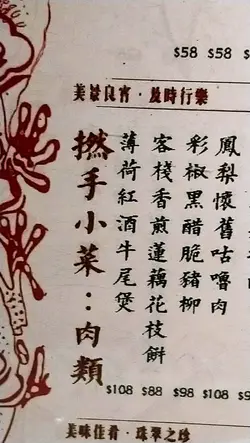 $58 $58 $
美景良宵．及時行樂
撚手小菜：肉類
薄荷紅酒牛尾煲
客棧香煎蓮藕花枝餅
彩椒黑醋脆豬柳
鳳梨懷舊咕嚕肉
$108 $88 $98 $108 $9
美味佳肴．珠翠之珍